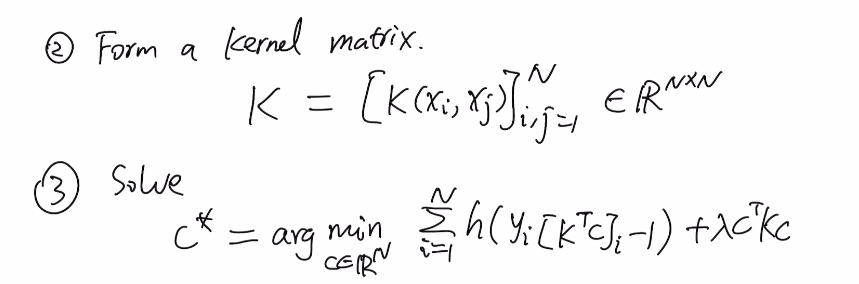 ② Form a kernel matrix.
K = [K(xᵢ, xⱼ)]ᵢ,ⱼ₌₁ᴺ ∈ ℝᴺˣᴺ
③ Solve
c* = arg min_{c∈ℝᴺ} ∑ᵢ₌₁ᴺ h(yᵢ[Kᵀc]ᵢ-1) + λcᵀKc